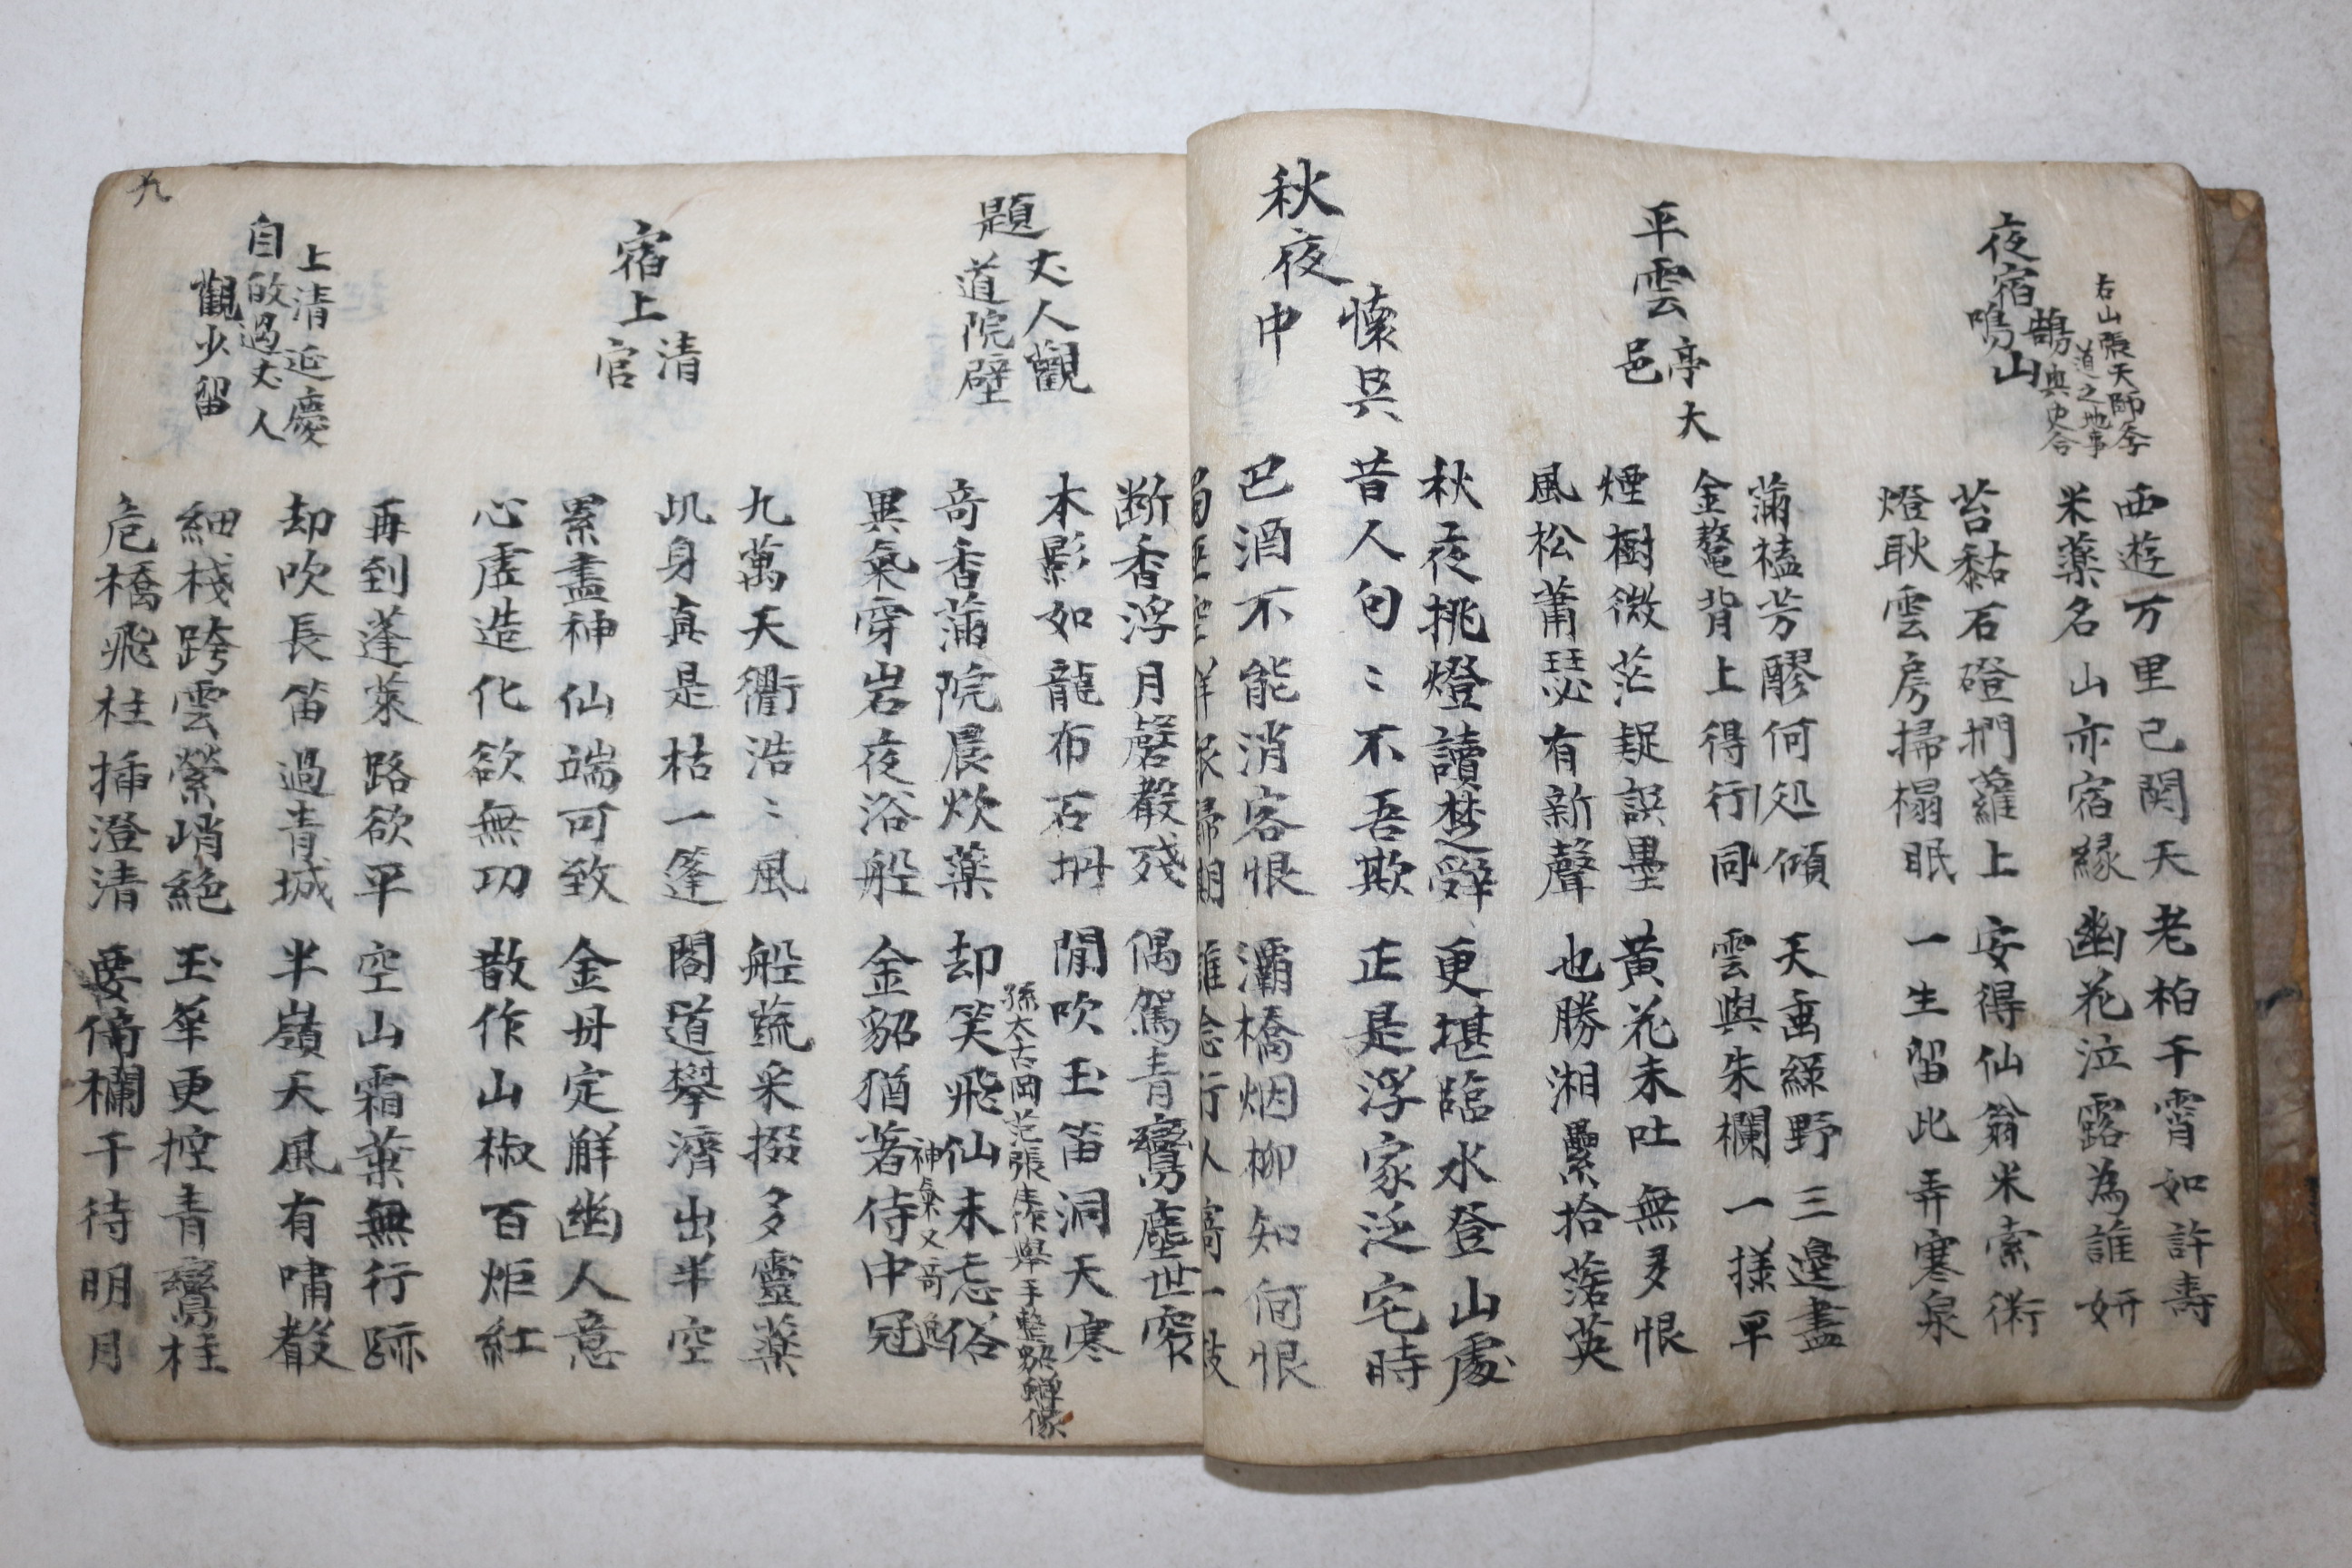 夜宿鵠鳴山
右山張天師
道之地事
與史合
西遊万里已関天 老柏千霄如許壽
米薬名山亦宿縁 幽花泣露為誰妍
苔黏石磴捫蘿上 安得仙翁米索術
燈耿雲房掃榻眠 一生留此弄寒泉
平雲亭大邑
蒲禧芳醪何処傾 天垂緑野三邊盡
金鼇背上得行同 雲與朱欄一様平
煙樹微茫疑誤墨 黃花未吐無多恨
風松蕭瑟有新聲 也勝湘纍拾落英
秋夜懐吳中
秋夜挑燈讀楚辞 更堪臨水登山處
昔人句〻不吾欺 正是浮家泛宅時
巴酒不能消客恨 灞橋烟柳知何恨
題丈人觀道院壁
断香浮月磬聲殘 偶駕青鸞塵世窄
木影如龍布石坍 閒吹玉笛洞天寒
奇香蒲院晨炊薬 却笑飛仙未忘俗
異氣穿岩夜浴船 金貂猶著侍中冠
孫太古画范張 舉手整貂蟬像
神氣又奇逸
宿上清官
九萬天衢浩〻風 船蔬采掇多靈薬
㕶身真是枯一篷 閣道攀濟出半空
累盡神仙端可致 金丹定解幽人意
心虚造化欲無功 散作山椒百炬紅
自上清延慶故過丈人觀少留
再到蓬萊路欲平 空山霜葉無行跡
却吹長笛過青城 半嶺天風有嘯聲
細棧跨雲縈峭絶 玉華更控青鸞柱
危橋飛柱插澄清 要倚欄干待明月
九